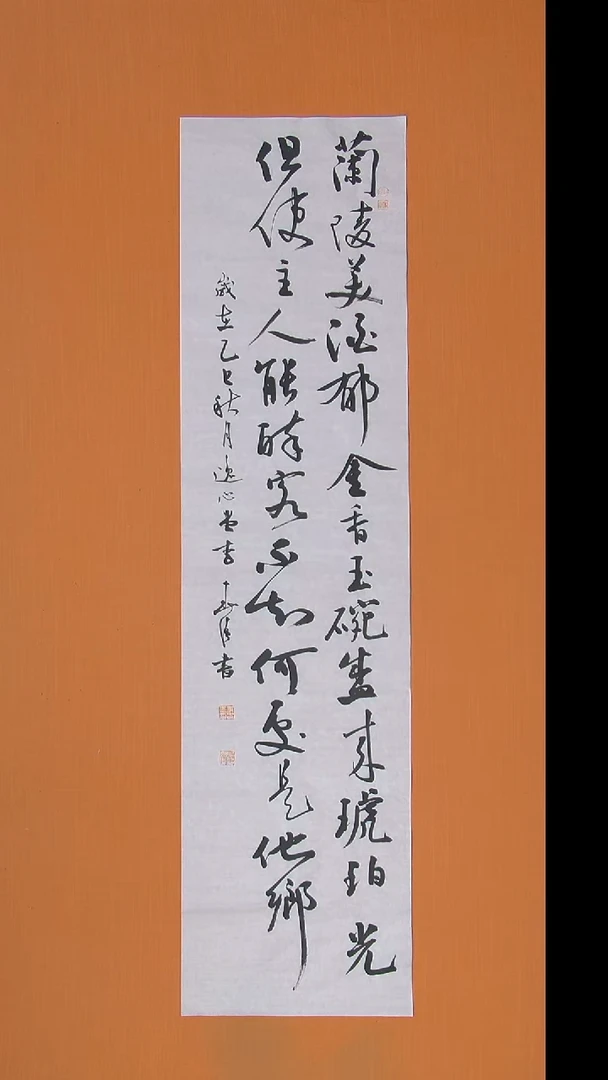 蘭陵美酒郁金香玉碗盛来琥珀光
但使主人能醉客不知何處是他鄉
歲在乙巳秋月逸心堂書